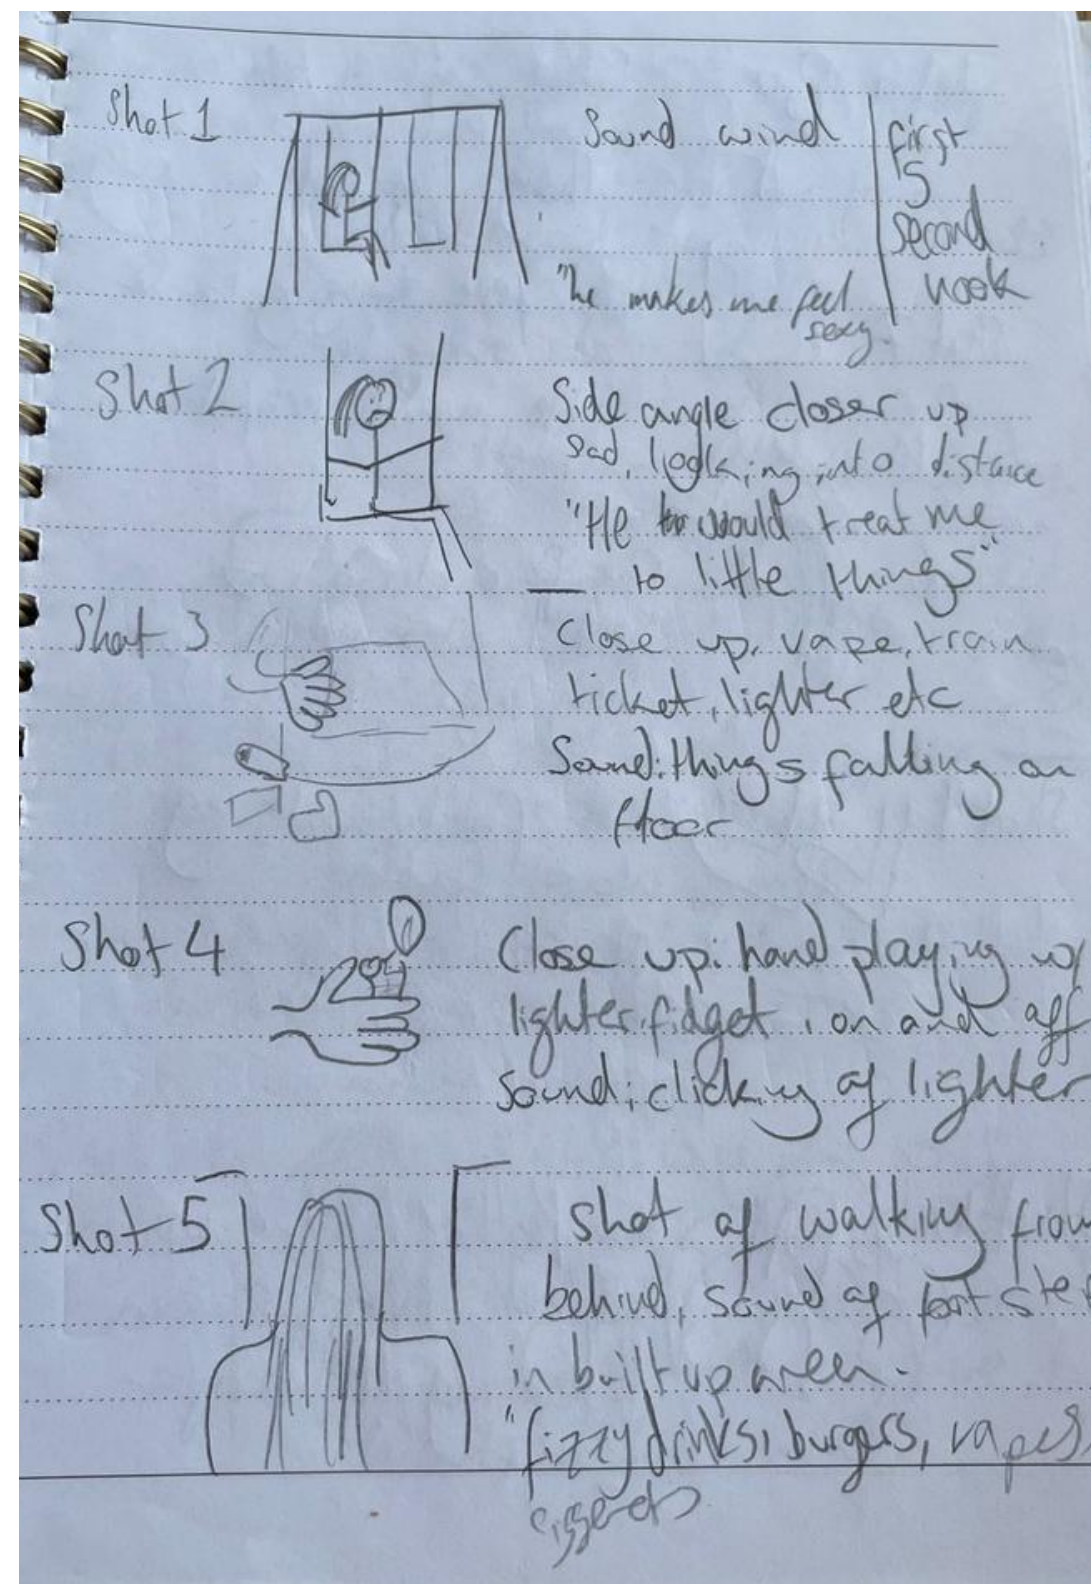 Shot 1
Sound wind
first
5
second
hook
"he makes me feel
sexy.
Shot 2
Side angle closer up
Sad, looking into distance
"He would treat me
to little things"
Shot 3
Close up, vape, train
ticket, lighter etc
Sound: things falling on
floor
Shot 4
Close up: hand playing w/
lighter, fidget, on and off
Sound: clicking of lighter
Shot 5
Shot of walking from
behind, sound of foot step
in built up area.
"fizzy drinks, burgers, vapes,